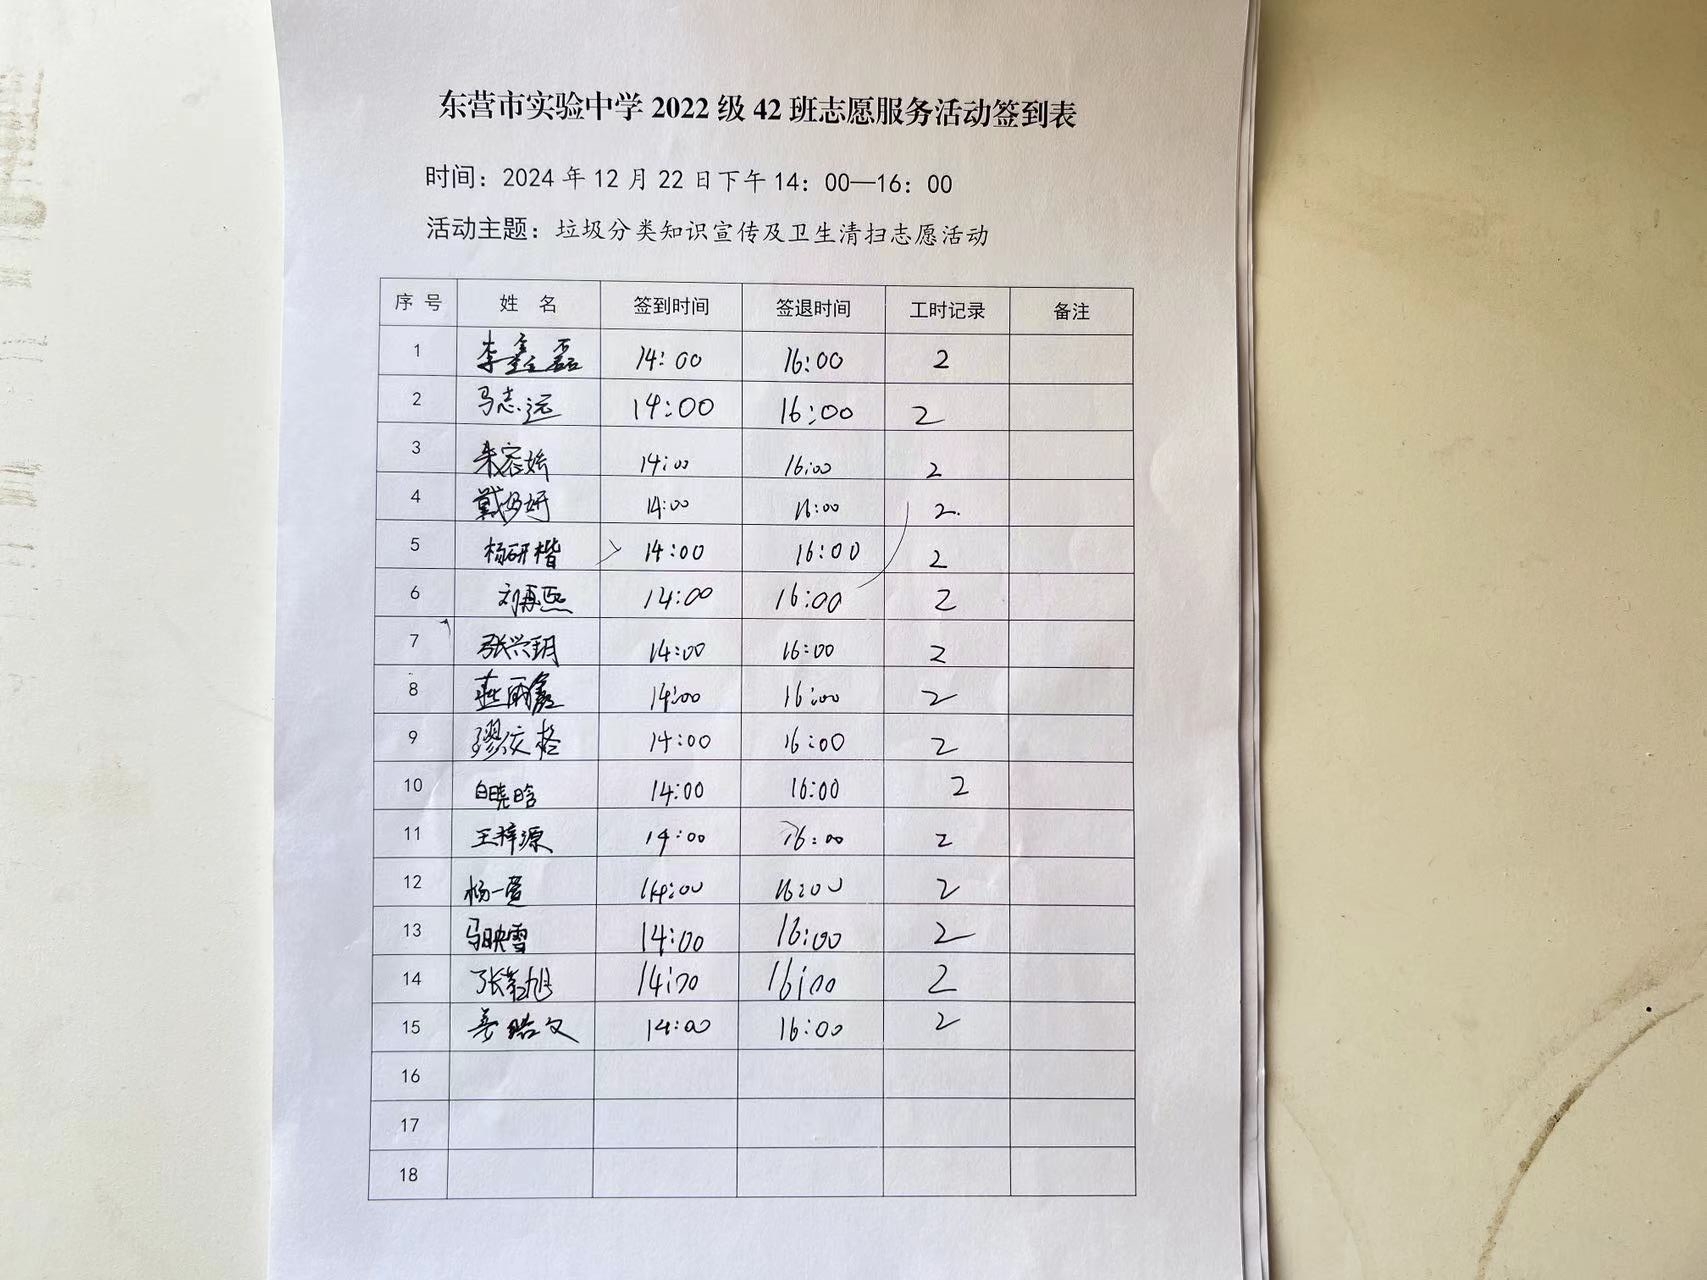 东营市实验中学 2022 级 42 班志愿服务活动签到表
时间：2024 年 12 月 22 日下午 14：00—16：00
活动主题：垃圾分类知识宣传及卫生清扫志愿活动
序号 姓名 签到时间 签退时间 工时记录 备注
1 李鑫磊 14:00 16:00 2
2 马志远 14:00 16:00 2
3 14:00 16:00 2
4 14:00 16:00 2.
5 杨研楷 14:00 16:00 2
6 刘再熙 14:00 16:00 2
7 张兴玥 14:00 16:00 2
8 14:00 16:00 2
9 14:00 16:00 2
10 白晓晗 14:00 16:00 2
11 王梓源 14:00 16:00 2
12 14:00 16:00 2
13 马映雪 14:00 16:00 2
14 14:00 16:00 2
15 14:00 16:00 2
16
17
18